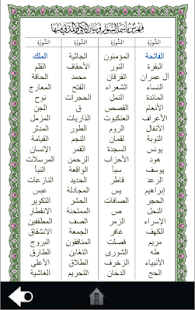 السورة السورة السورة السورة
الفاتحة المؤمنون الجاثية الملك
البقرة النور الأحقاف القلم
آل عمران الفرقان محمد الحاقة
النساء الشعراء الفتح المعارج
المائدة النمل الحجرات نوح
الأنعام القصص ق الجن
الأعراف العنكبوت الذاريات المزمل
الأنفال الروم الطور المدثر
التوبة لقمان النجم القيامة
يونس السجدة القمر الإنسان
هود الأحزاب الرحمن المرسلات
يوسف سبأ الواقعة النبأ
الرعد فاطر الحديد النازعات
إبراهيم يس المجادلة عبس
الحجر الصافات الحشر التكوير
النحل ص الممتحنة الانفطار
الإسراء الزمر الصف المطففين
الكهف غافر الجمعة الانشقاق
مريم فصلت المنافقون البروج
طه الشورى التغابن الطارق
الأنبياء الزخرف الطلاق الأعلى
الحج الدخان التحريم الغاشية